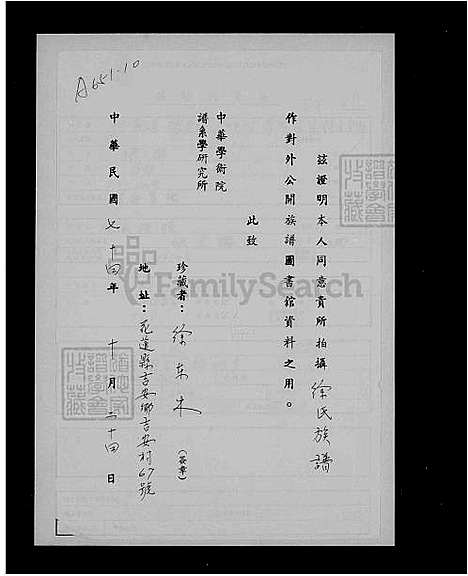 A651-10
茲證明本人同意貴所拍攝徐氏族譜
作對外公開族譜圖書館資料之用。
此致
中華學術院
譜系學研究所
珍藏者：徐東木（簽章）
地址：花蓮縣吉安鄉吉安村67號
中華民國七十四年十月二十四日
FamilySearch